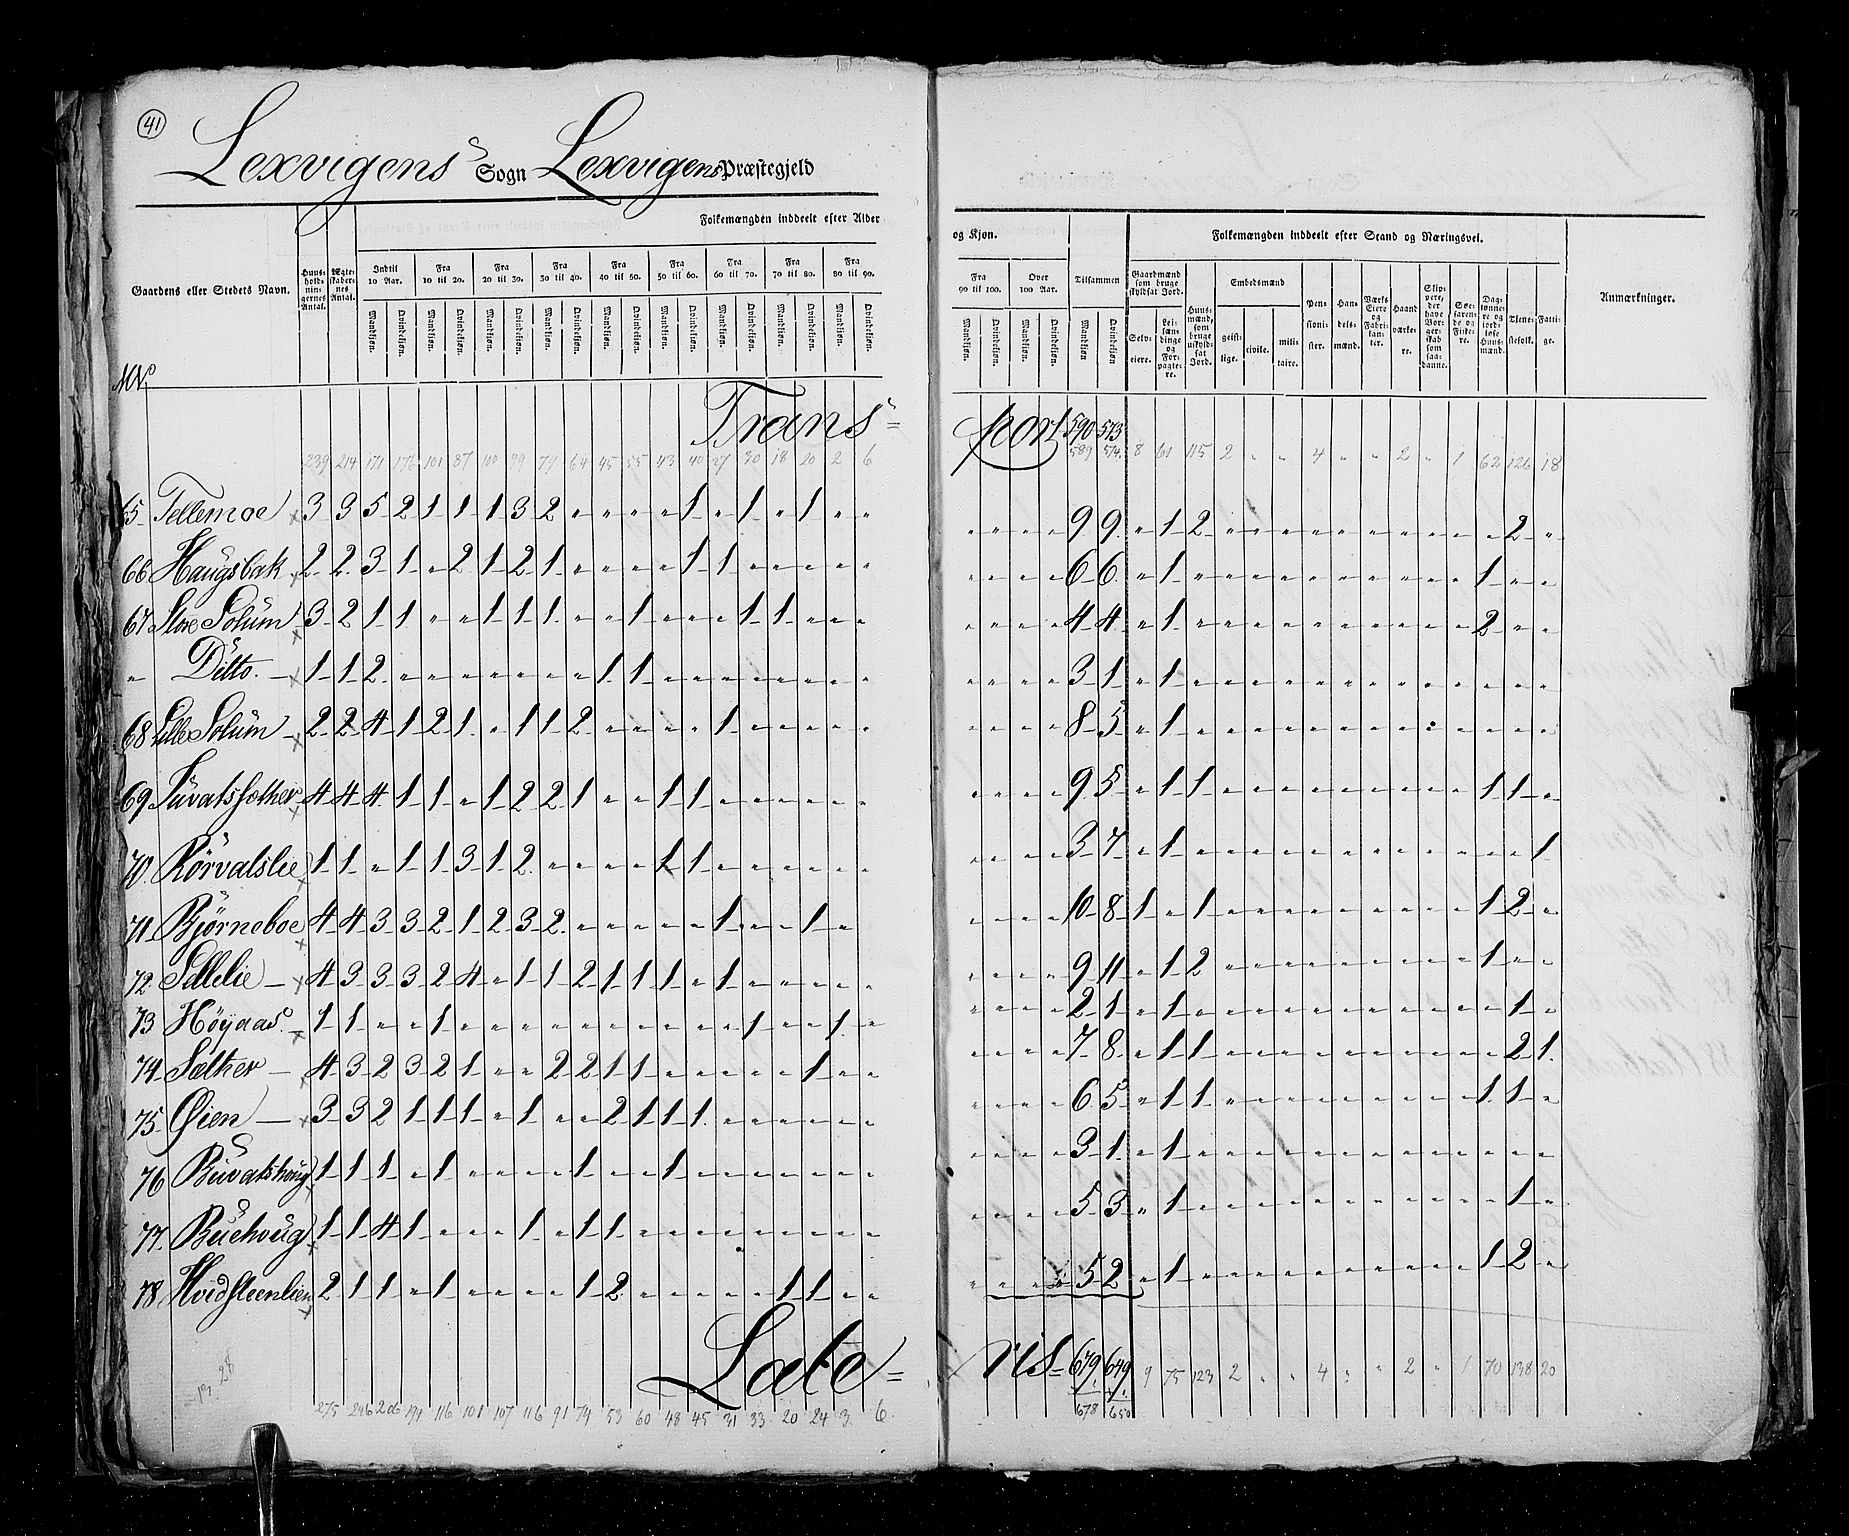 41
Lexvigens Sogn Lexvigens Præstegjeld
Folkemængden inddeelt efter Alder og Kjøn.
Folkemængden inddeelt efter Stand og Næringsvei.
Gaardens eller Stedets Navn.
Huus-holdnin-gernes Antal.
Ægte-skaber-nes Antal.
Indtil 10 Aar.
Fra 10 til 20.
Fra 20 til 30.
Fra 30 til 40.
Fra 40 til 50.
Fra 50 til 60.
Fra 60 til 70.
Fra 70 til 80.
Fra 80 til 90.
Fra 90 til 100.
Over 100 Aar.
Tilsammen
Mandkjøn. Qvindekjøn.
Gaardmænd som bruge skyldsat Jord.
Selv-eiere.
Lei-læn-dinge og For-pagte-re.
Huus-mænd, som bruge uskyld-sat Jord.
Embedsmænd
geist-lige.
civile.
mili-taire.
Pen-sioni-ster.
Han-dels-mænd.
Værks Eiere og Fabri-kan-ter.
Haand-værke-re.
Skip-pere, der have Bor-ger-skab som saa-danne.
Søe-faren-de og Fiske-re.
Dag-lønne-re og jord-løse Huus-mænd.
Tjene-stefolk.
Fatti-ge.
Anmærkninger.
Trans=port 590 573
239 214 171 176 101 87 100 99 79 64 45 55 43 40 27 30 18 20 2 6 589 574 8 61 115 2 " " 4 " " 2 " 1 62 126 18
65 Tellemoe 3 3 5 2 1 1 1 3 2 " " " " 1 " 1 " 1 " " " " " " 9 9 " 1 2 " " " " " " " " " " 2 "
66 Haugsbak 2 2 3 1 " 2 1 2 1 " " " " 1 1 " " " " " " " " " 6 6 " 1 " " " " " " " " " " 1 " "
67 Store Solum 3 2 1 1 " " 1 1 1 " " 1 " " " 1 1 " " " " " " " 4 4 " 1 " " " " " " " " " " 2 " "
" Ditto 1 1 2 " " " " " " " 1 1 " " " " " " " " " " " " 3 1 " 1 " " " " " " " " " " " " "
68 Lille Solum 2 2 4 1 2 1 " 1 1 2 " " " " 1 " " " " " " " " " 8 5 " 1 " " " " " " " " " " " " "
69 4 4 4 1 1 " 1 2 2 1 " " 1 1 " " " " " " " " " " 9 5 " 1 1 " " " " " " " " " 1 1 "
70 Rörvatslie 1 1 " 1 1 3 1 2 " " " " 1 1 " " " " " " " " " " 3 7 " 1 " " " " " " " " " " " " 1
71 Bjørneboe 4 4 3 3 2 1 2 3 2 " " " " " 1 " " 1 " " " " " 10 8 1 " 1 " " " " " " " " " 1 2 "
72 Sellelie 4 3 3 3 2 4 " 1 1 2 1 1 1 " 1 " " " " " " " " " 9 11 " 1 2 " " " " " " " " " 1 " "
73 Høyaas 1 1 " " 1 " " " " " " " " " " 1 " " 1 " " " " " 2 1 " 1 " " " " " " " " " " " 1 "
74 Sæther 4 3 2 3 2 1 " " 2 2 1 1 " " " " " 1 " " " " " " 7 8 " 1 1 " " " " " " " " " " 2 1
75 Øien 3 3 2 1 1 1 " 1 " " 2 1 1 1 " " " " " " " " " " 6 5 " 1 1 " " " " " " " " " 1 1 "
76 Buvatshoug 1 1 1 " 1 " " " " 1 " " 1 " " " " " " " " " " " 3 1 " 1 " " " " " " " " " " " " "
77 Buehoug 1 1 4 1 " " " 1 " 1 1 " " " " " " " " " " " " " 5 3 " 1 " " " " " " " " " " " 1 "
78 Hvidsteenlien 2 1 1 " 1 " " " " 1 2 " " " " " 1 1 " " " " " " 5 2 " 1 " " " " " " " " " " 1 2 "
Late=ris 679 649 9 75 123 2 " " 4 " " 2 " 1 70 138 20
275 246 206 194 116 101 107 116 91 74 53 60 48 45 31 33 20 24 3 6 678 650